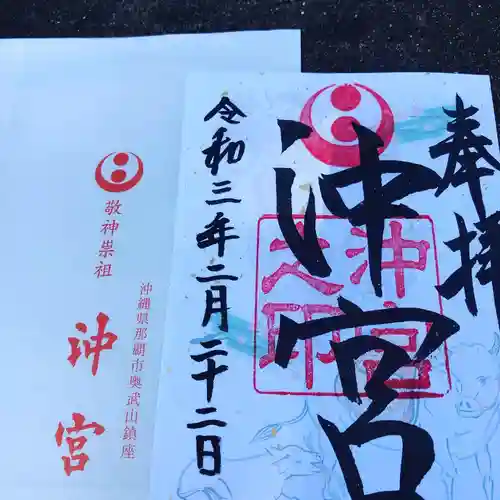 奉拝
沖宮
沖宮之印
令和三年二月二十二日
敬神崇祖
沖宮
沖縄県那覇市奥武山鎮座